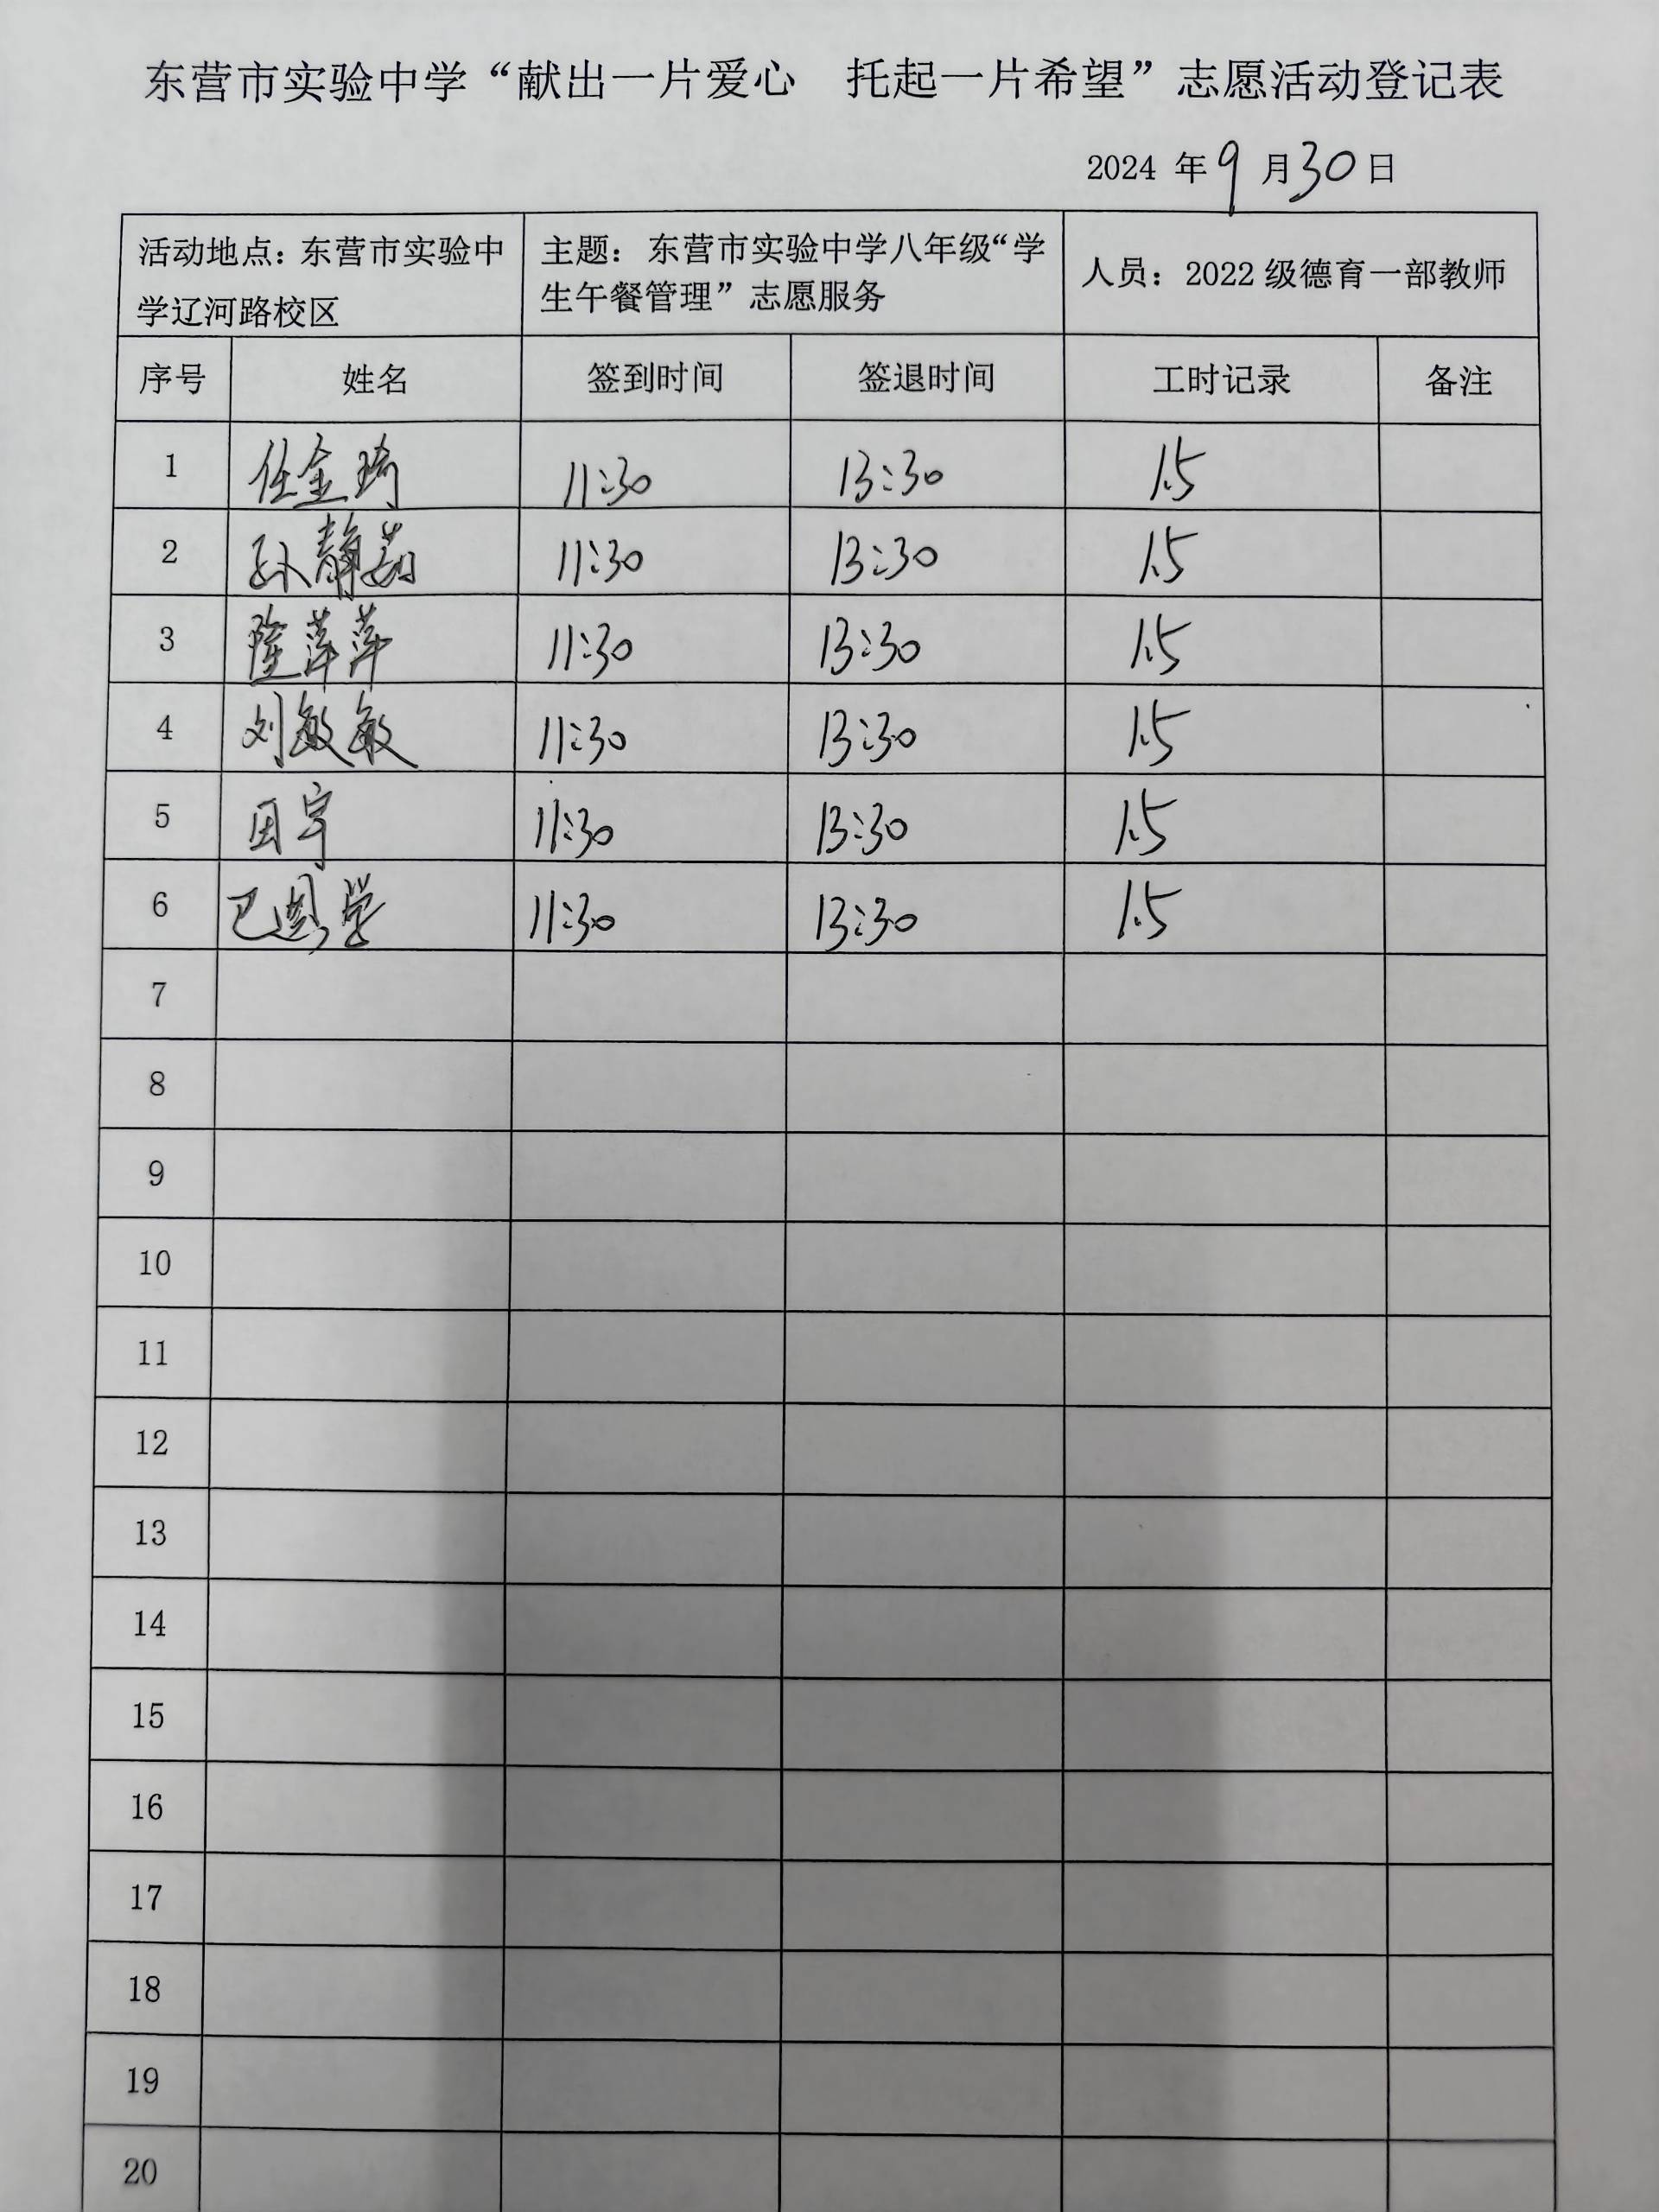 东营市实验中学“献出一片爱心 托起一片希望”志愿活动登记表
2024 年 9 月 30 日
活动地点：东营市实验中
学辽河路校区
主题： 东营市实验中学八年级“学
生午餐管理”志愿服务
人员：2022 级德育一部教师
序号 姓名 签到时间 签退时间 工时记录 备注
1 任金琦 11:30 13:30 1.5
2 孙静茹 11:30 13:30 1.5
3 隆萍萍 11:30 13:30 1.5
4 刘敏敏 11:30 13:30 1.5
5 田宇 11:30 13:30 1.5
6 巴 学 11:30 13:30 1.5
7
8
9
10
11
12
13
14
15
16
17
18
19
20